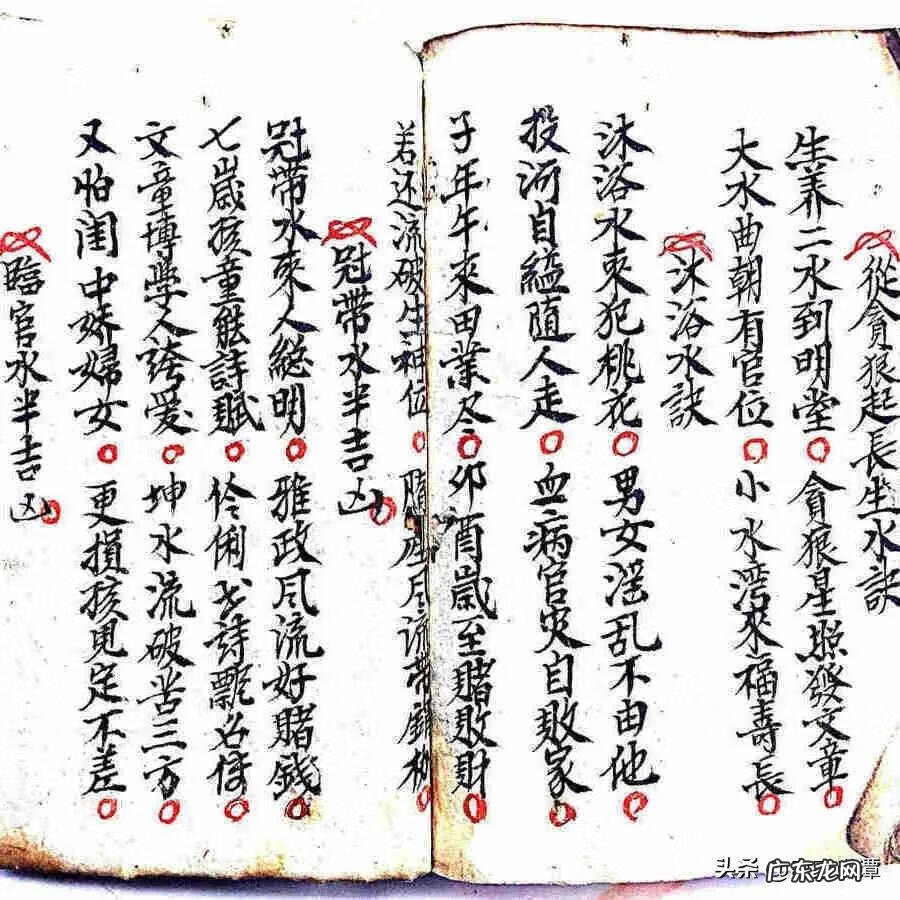 從貪狼起長生水訣
生养二水到明堂 貪狼星照發文章
大水曲朝有官位 小水湾來福壽長
沐浴水訣
沐浴水來犯桃花 男女淫乱不由他
投河自縊随人走 血病官灾自败家
子年午來田業尽 卯酉歲至賭敗財
若还流破生神位
冠帶水半吉凶
冠帶水來人総明 雅政风流好賭錢
七歲孩童能詩賦 伶俐 詩飄名
文章博學人誇爱 坤水流破苦三方
又怕闺中娇婦女 更損孩児定不差
臨官水半吉凶
头条 广东龙网